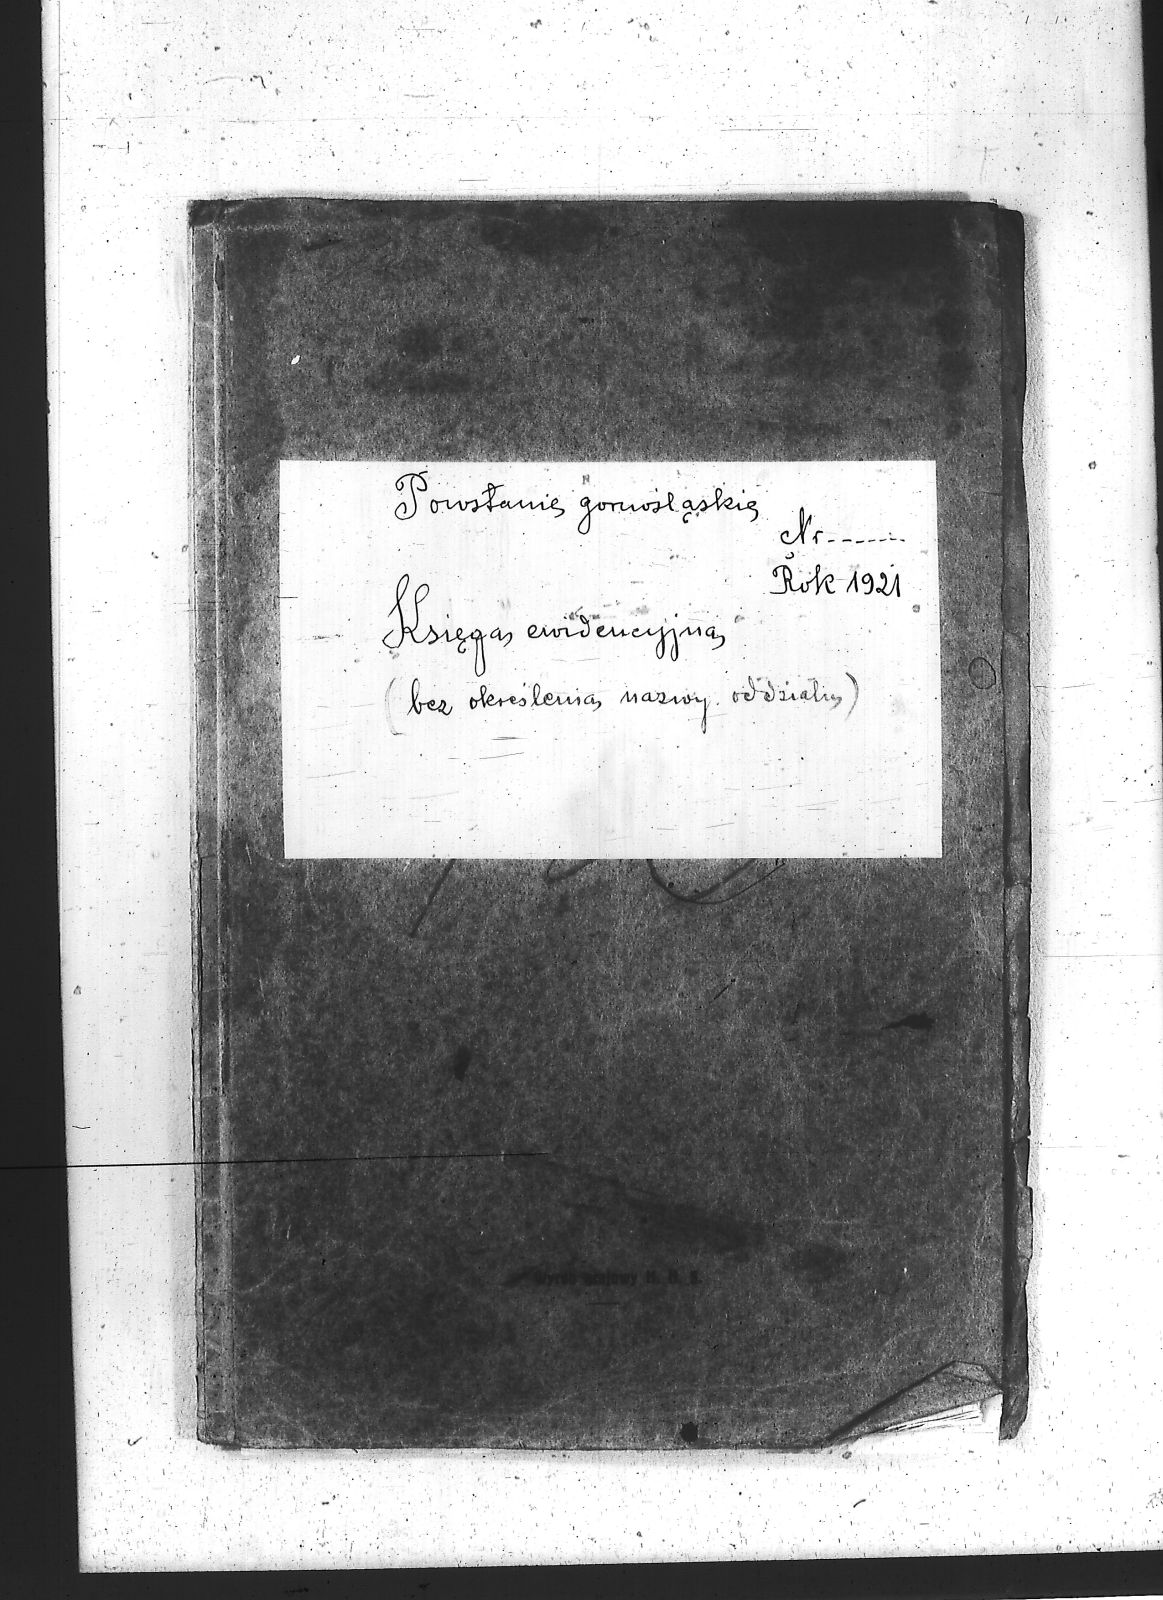 Powstanie gornośląskie
Nr.------
Rok 1921
Księga ewidencyjna
(bez określenia nazwy oddziału)